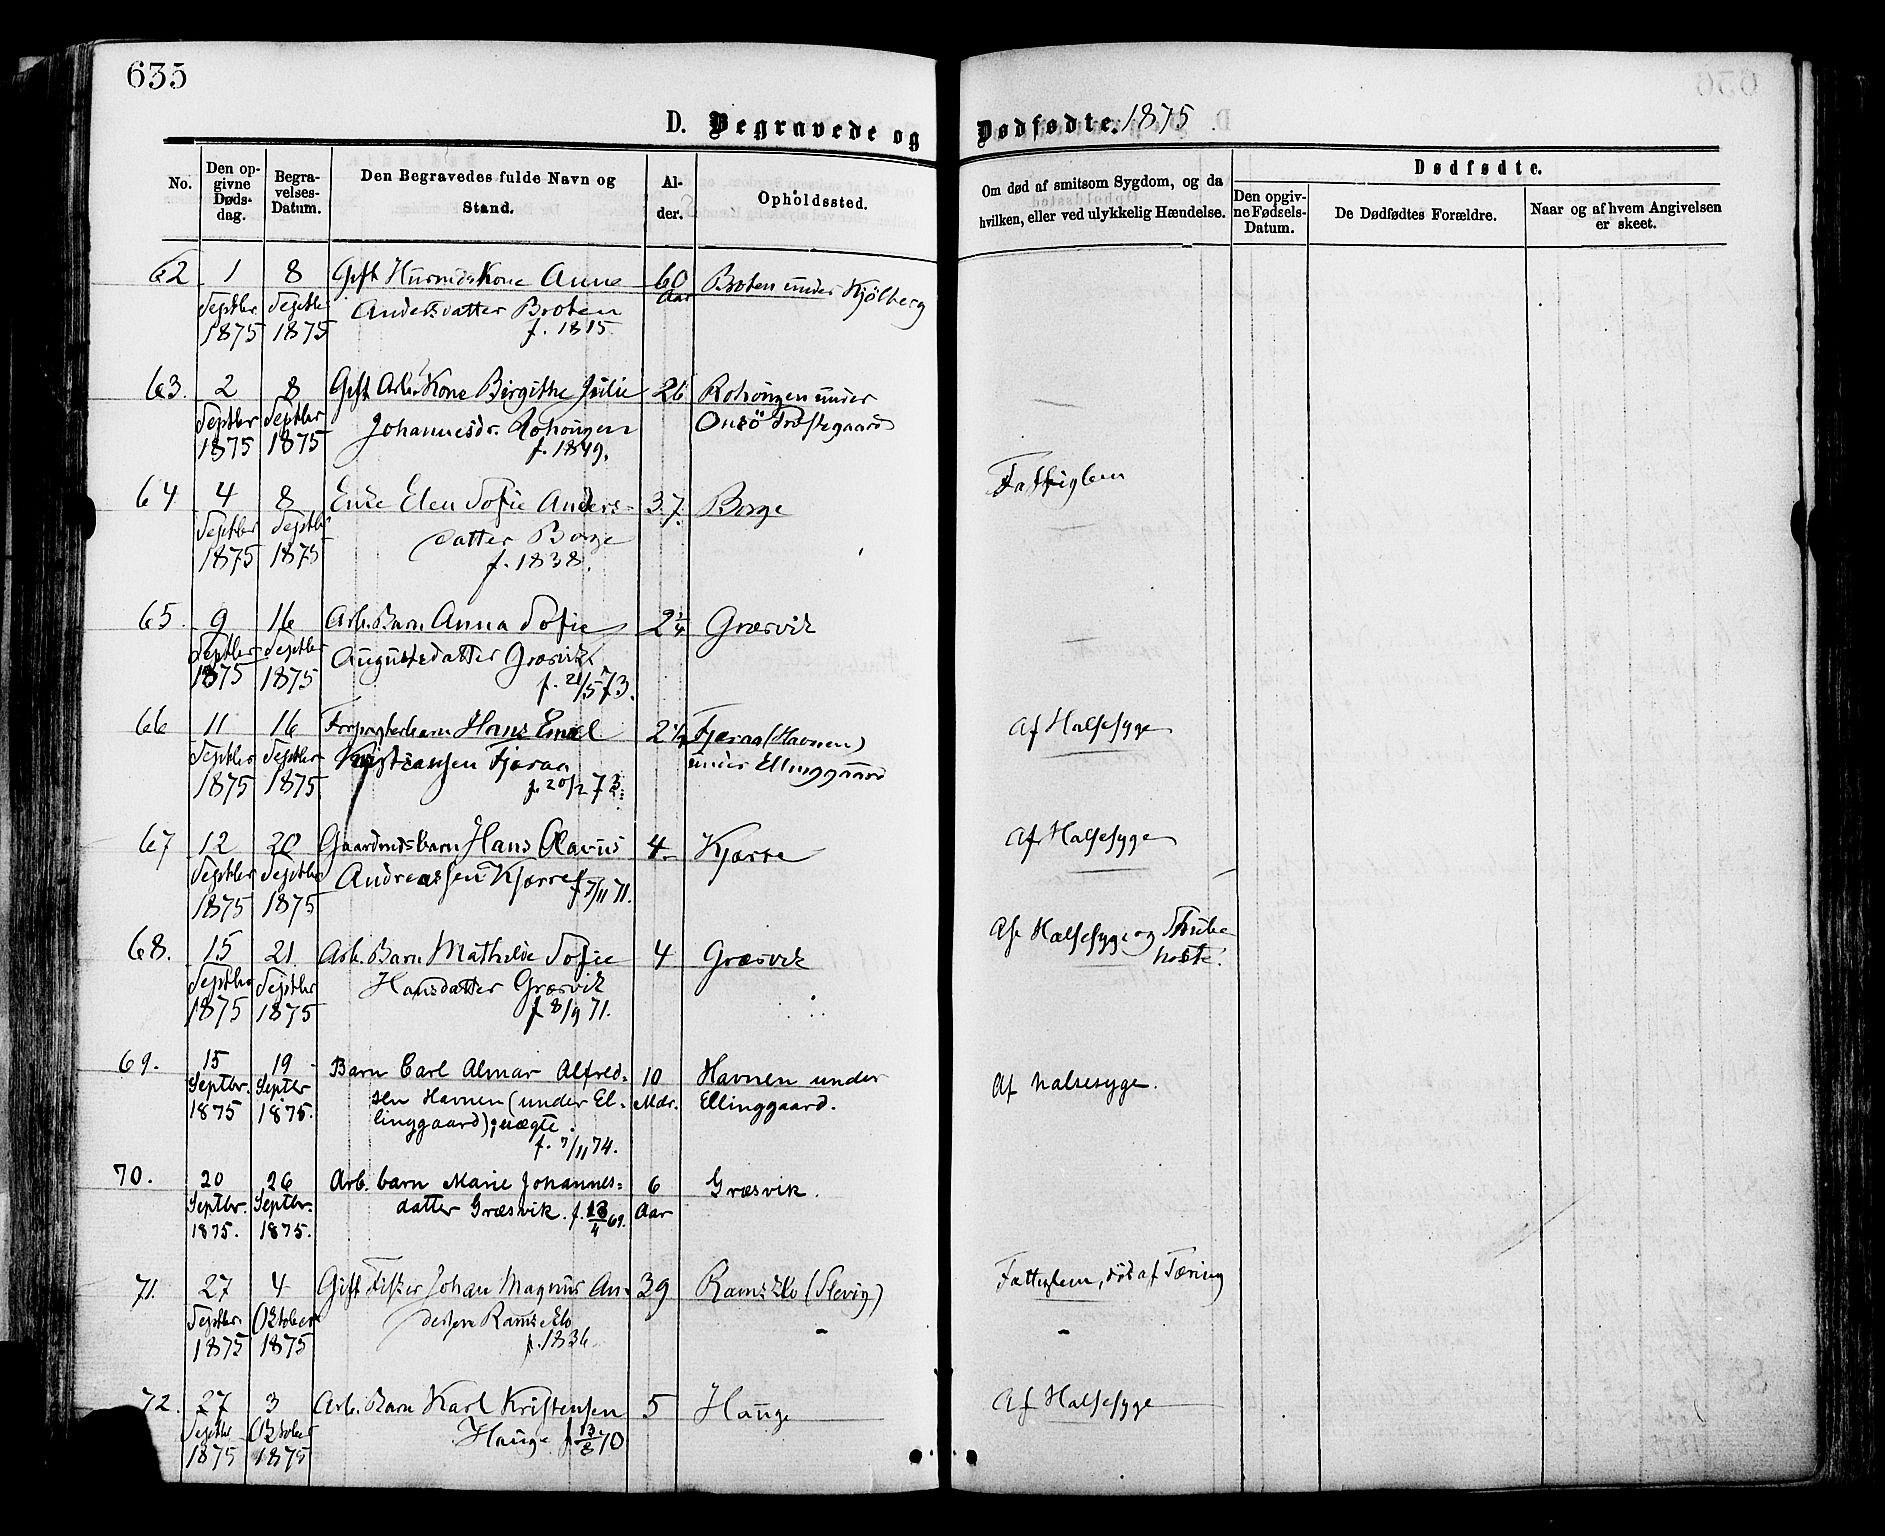 635
D. Begravede og Dødfødte. 1875
No.
Den opgivne Dødsdag.
Begravelses-Datum.
Den Begravedes fulde Navn og Stand.
Alder.
Opholdssted.
Om død af smitsom Sygdom, og da hvilken, eller ved ulykkelig Hændelse.
Dødfødte.
Den opgivne Fødsels-Datum.
De Dødfødtes Forældre.
Naar og af hvem Angivelsen er skeet.
62 1 8 Gift Husmdskone Anne 60 Broten under Kjölberg
Septbr Septbr Andersdatter Broten Aar
1875 1875 f. 1815.
63. 2 8 Gift Arb. Kone Birgithe Julie 26 Rohöugen under
Septbr Septbr Johannesdr. Rohöugen Onsö Præstegaard
1875 1875 f. 1849.
64 4 8 Enke Elen Sofie Anders- 37. Borge Fattiglem
Septbr Septbr datter Borge
1875 1875 f. 1838.
65. 9 16 Arb. Barn Anna Sofie 2 1/4 Græsvik
Septbr Septbr Augustsdatter Græsvik
1875 1875 f. 21/5 73.
66 11 16 Forpagterbarn Hans Emil 2 1/2 Fjæraa (Havnen) Af Halsesyge
Septbr Septbr Kristiansen Fjæraa under Ellinggaard
1875 1875 f. 20/2 73.
67 12 20 Gaardmdsbarn Hans Olavus 4 Kjærre Af Halsesyge
Septbr Septbr Andreassen Kjærre
1875 1875 f 7/11 71.
68. 15 21. Arb. Barn Mathilde Sofie 4 Græsvik Af Halsesyge og Strube
Septbr Septbr Hansdatter Græsvik hoste.
1875 1875 f 8/9 71.
69. 15 19 Barn Carl Almar Alfred- 10 Havnen under Af halsesyge.
Septbr. Septbr sen Havnen (under El- Mdr. Ellinggaard.
1875 1875. linggaard); uægte.
f. 7/11 74.
70. 20 26 Arb. barn Marie Johannes- 6 Græsvik.
Septbr. Septbr. datter Græsvik. f. 13/4 69. Aar
1875. 1875.
71. 27 4 Gift Fisker Johan Magnus An- 39 Ramseklo (Slevig) Fattiglem, død af Tæring
Septbr Oktober dersen Ramseklo
1875 1875 f. 1836.
72. 27 3 Arb. Barn Karl Kristensen 5 Hauge Af Halsesyge
Septbr Oktober Hauge f 13/8 70
1875 1875